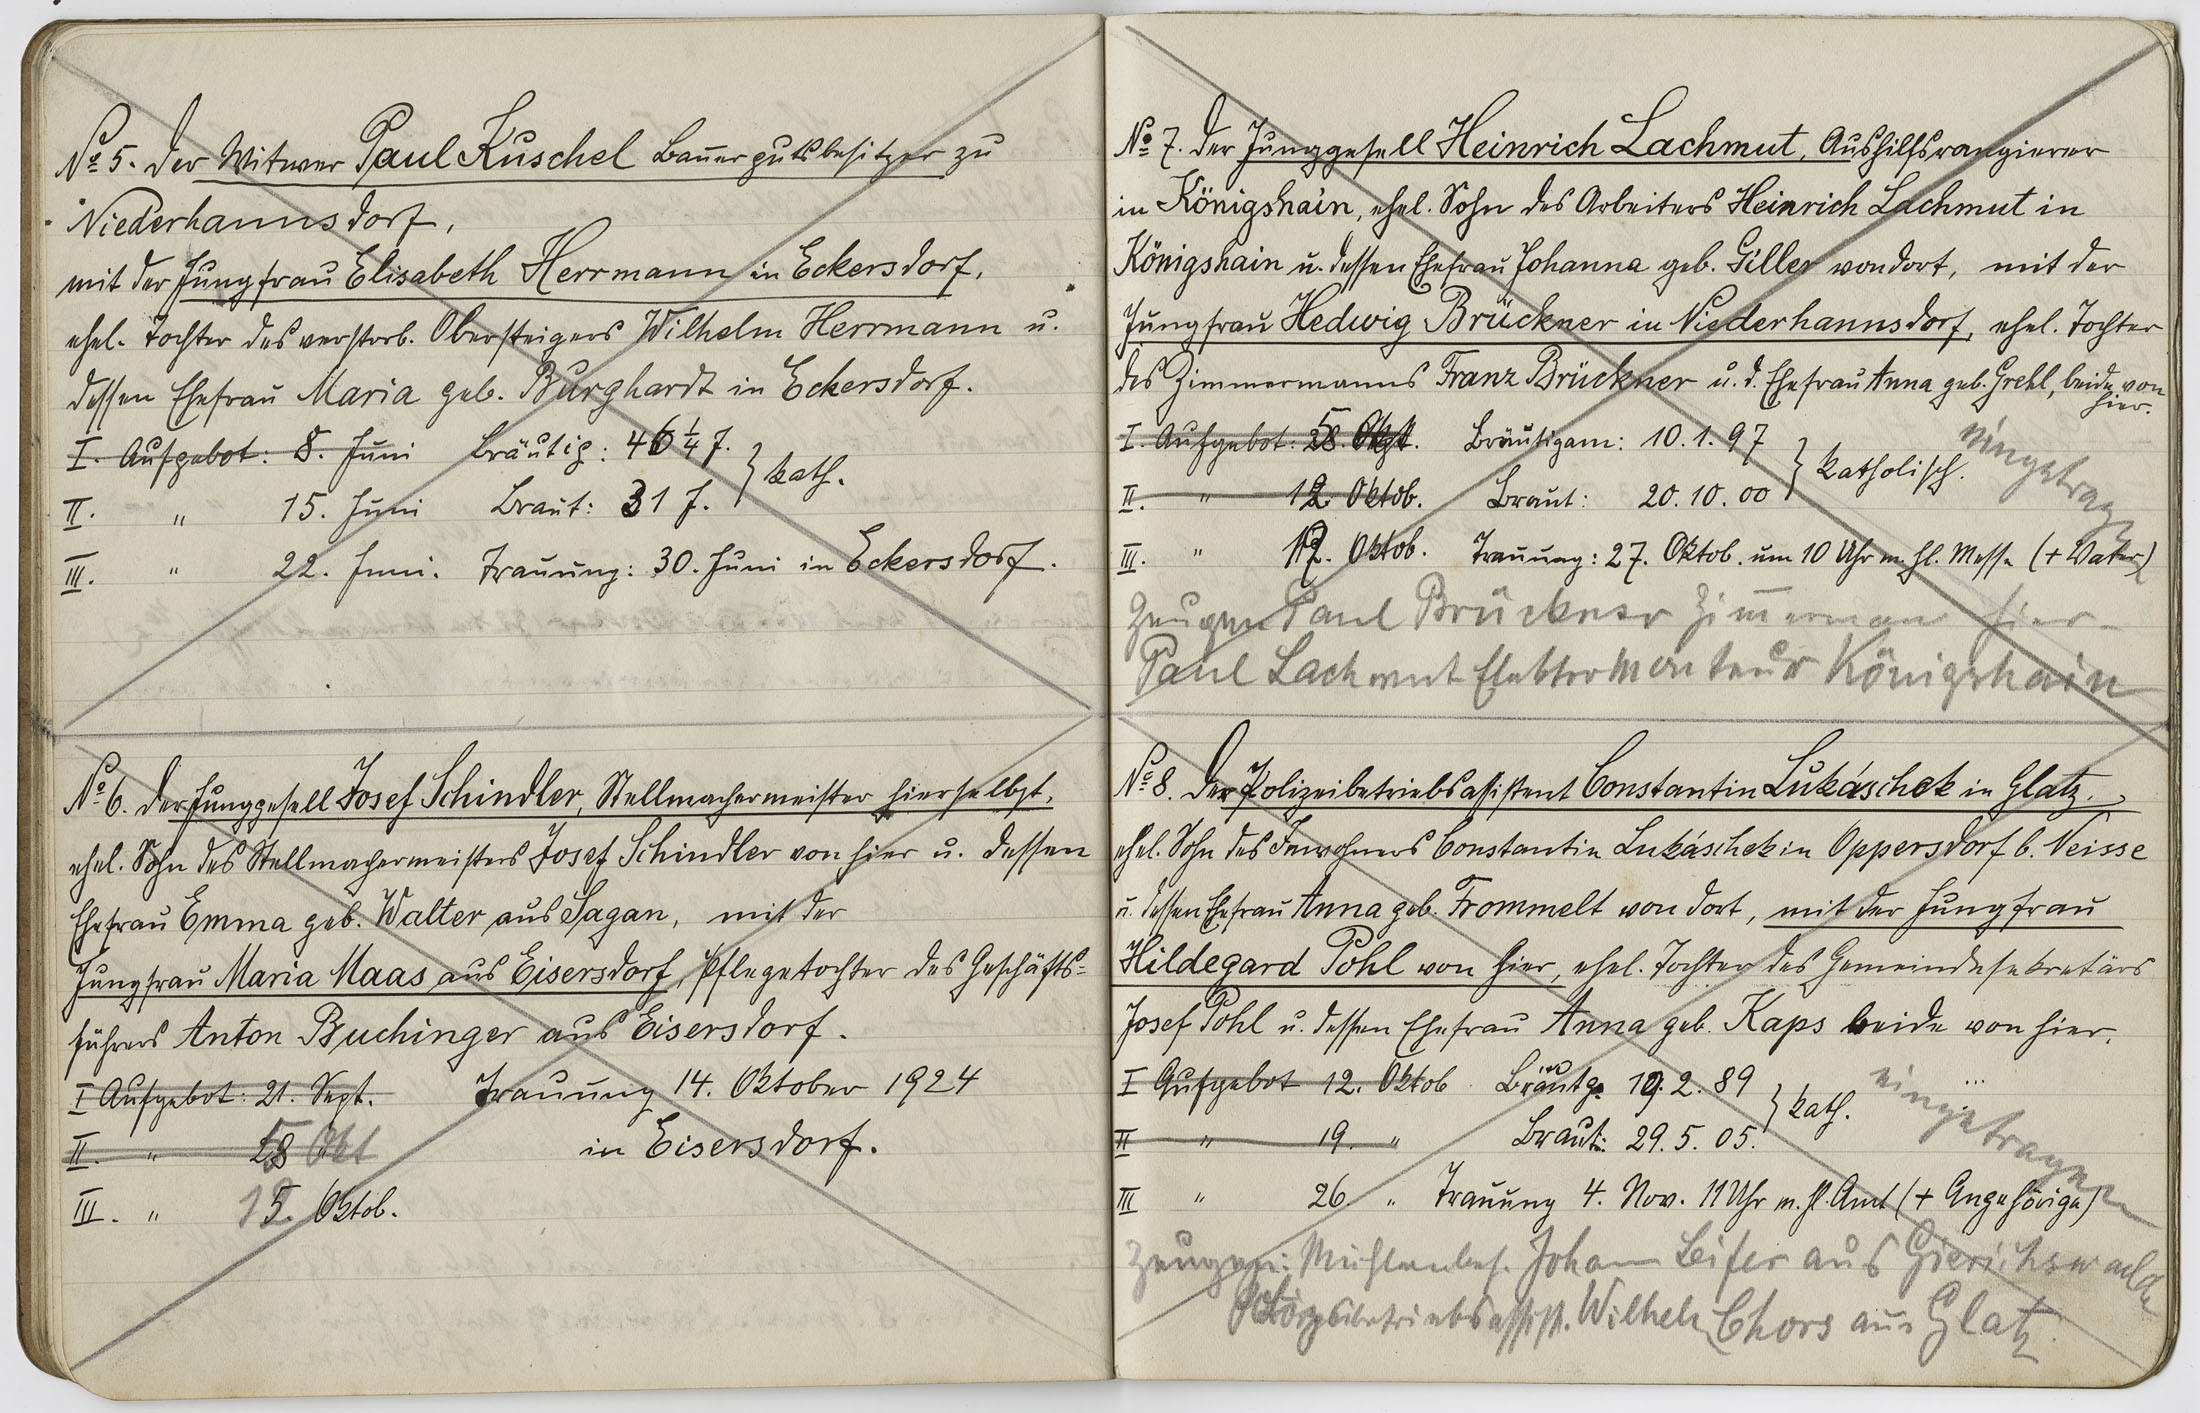 No 5. Der Witwer Paul Kuschel Bauergutsbesitzer zu
Niederhannsdorf,
mit der Jungfrau Elisabeth Herrmann in Eckersdorf,
ehel. Tochter des verstorb. Obersteigers Wilhelm Herrmann u.
dessen Ehefrau Maria geb. Burghardt in Eckersdorf.
I. Aufgebot: 8. Juni Bräutig: 46 1/4 J. } kath.
II. " 15. Juni Braut: 31 J.
III. " 22. Juni. Trauung: 30. Juni in Eckersdorf.
No 6. Der Junggesell Josef Schindler, Stellmachermeister hierselbst,
ehel. Sohn des Stellmachermeisters Josef Schindler von hier u. dessen
Ehefrau Emma geb. Walter aus Sagan, mit der
Jungfrau Maria Maas aus Eisersdorf, Pflegetochter des Geschäfts=
führers Anton Buchinger aus Eisersdorf.
I Aufgebot: 21. Sept. Trauung 14. Oktober 1924
II. " 5 Okt in Eisersdorf.
III. " 12. Oktob.
No 7. Der Junggesell Heinrich Lachmut, Aushilfsrangierer
in Königshain, ehel. Sohn des Arbeiters Heinrich Lachmut in
Königshain u. dessen Ehefrau Johanna geb. Giller von dort, mit der
Jungfrau Hedwig Brückner in Niederhannsdorf, ehel. Tochter
des Zimmermanns Franz Brückner u. d. Ehefrau Anna geb. Grehl, beide von
hier.
I. Aufgebot: 5. Okt. Bräutigam: 10.1.97 } katholisch. eingetragen
II. " 12. Oktob. Braut: 20.10.00
III. " 19. Oktob. Trauung: 27. Oktob. um 10 Uhr m. hl. Messe (+ Vater)
Zeugen Paul Brückner Zimmermann hier
Paul Lachmut Elektromonteur Königshain
No 8. Der Polizeibetriebsassistent Constantin Lukáschek in Glatz,
ehel. Sohn des Inwohners Constantin Lukáschek in Oppersdorf b. Neisse
u. dessen Ehefrau Anna geb. Frommelt von dort, mit der Jungfrau
Hildegard Pohl von hier, ehel. Tochter des Gemeindesekretärs
Josef Pohl u. dessen Ehefrau Anna geb. Kaps beide von hier.
I Aufgebot 12. Oktob Bräutg. 19.2.89 } kath. eingetragen
II " 19. " Braut: 29.5.05.
III " 26. " Trauung 4. Nov. 11 Uhr m. hl. Amt (+ Angehörige)
Zeugen: Mühlenbes. Johann Beifer aus Gierichswalde
Wilhelm Chors aus Glatz.